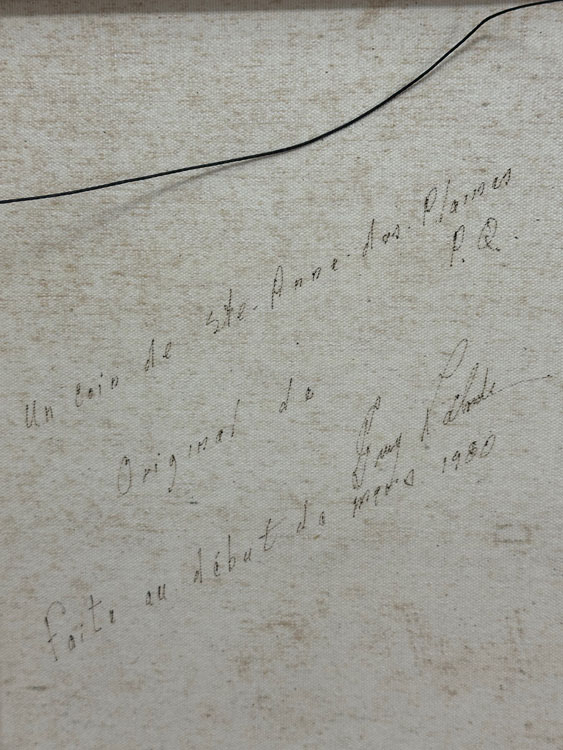 Un coin de Ste-Anne-des-Plaines
P. Q.
Original de Guy
Faite au début de mars 1980